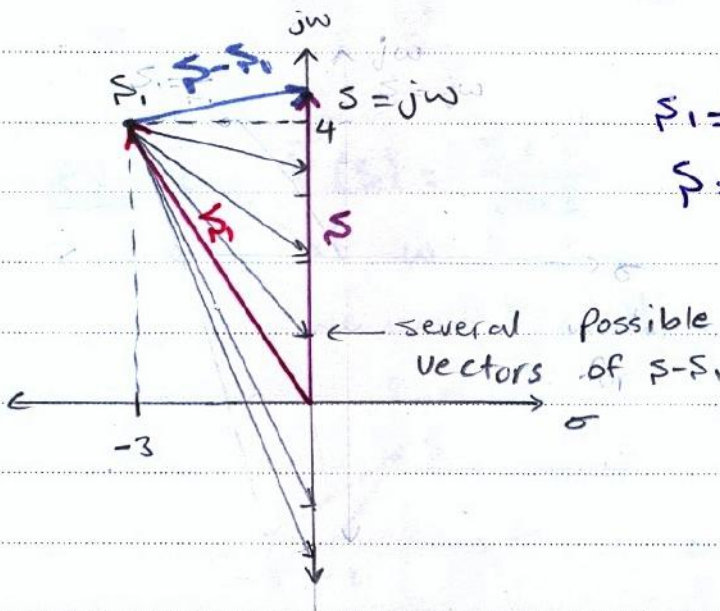 jω
S₁
S-S₁
S = jω
4
S₁ =
S
S₁
S
several possible
vectors of S-S₁
σ
-3